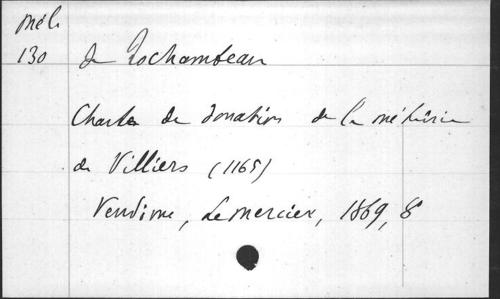 Mél.
130 de Rochambeau
Charte de donation de la métairie
de Villiers (1165)
Vendôme, Lemercier, 1869, 8°